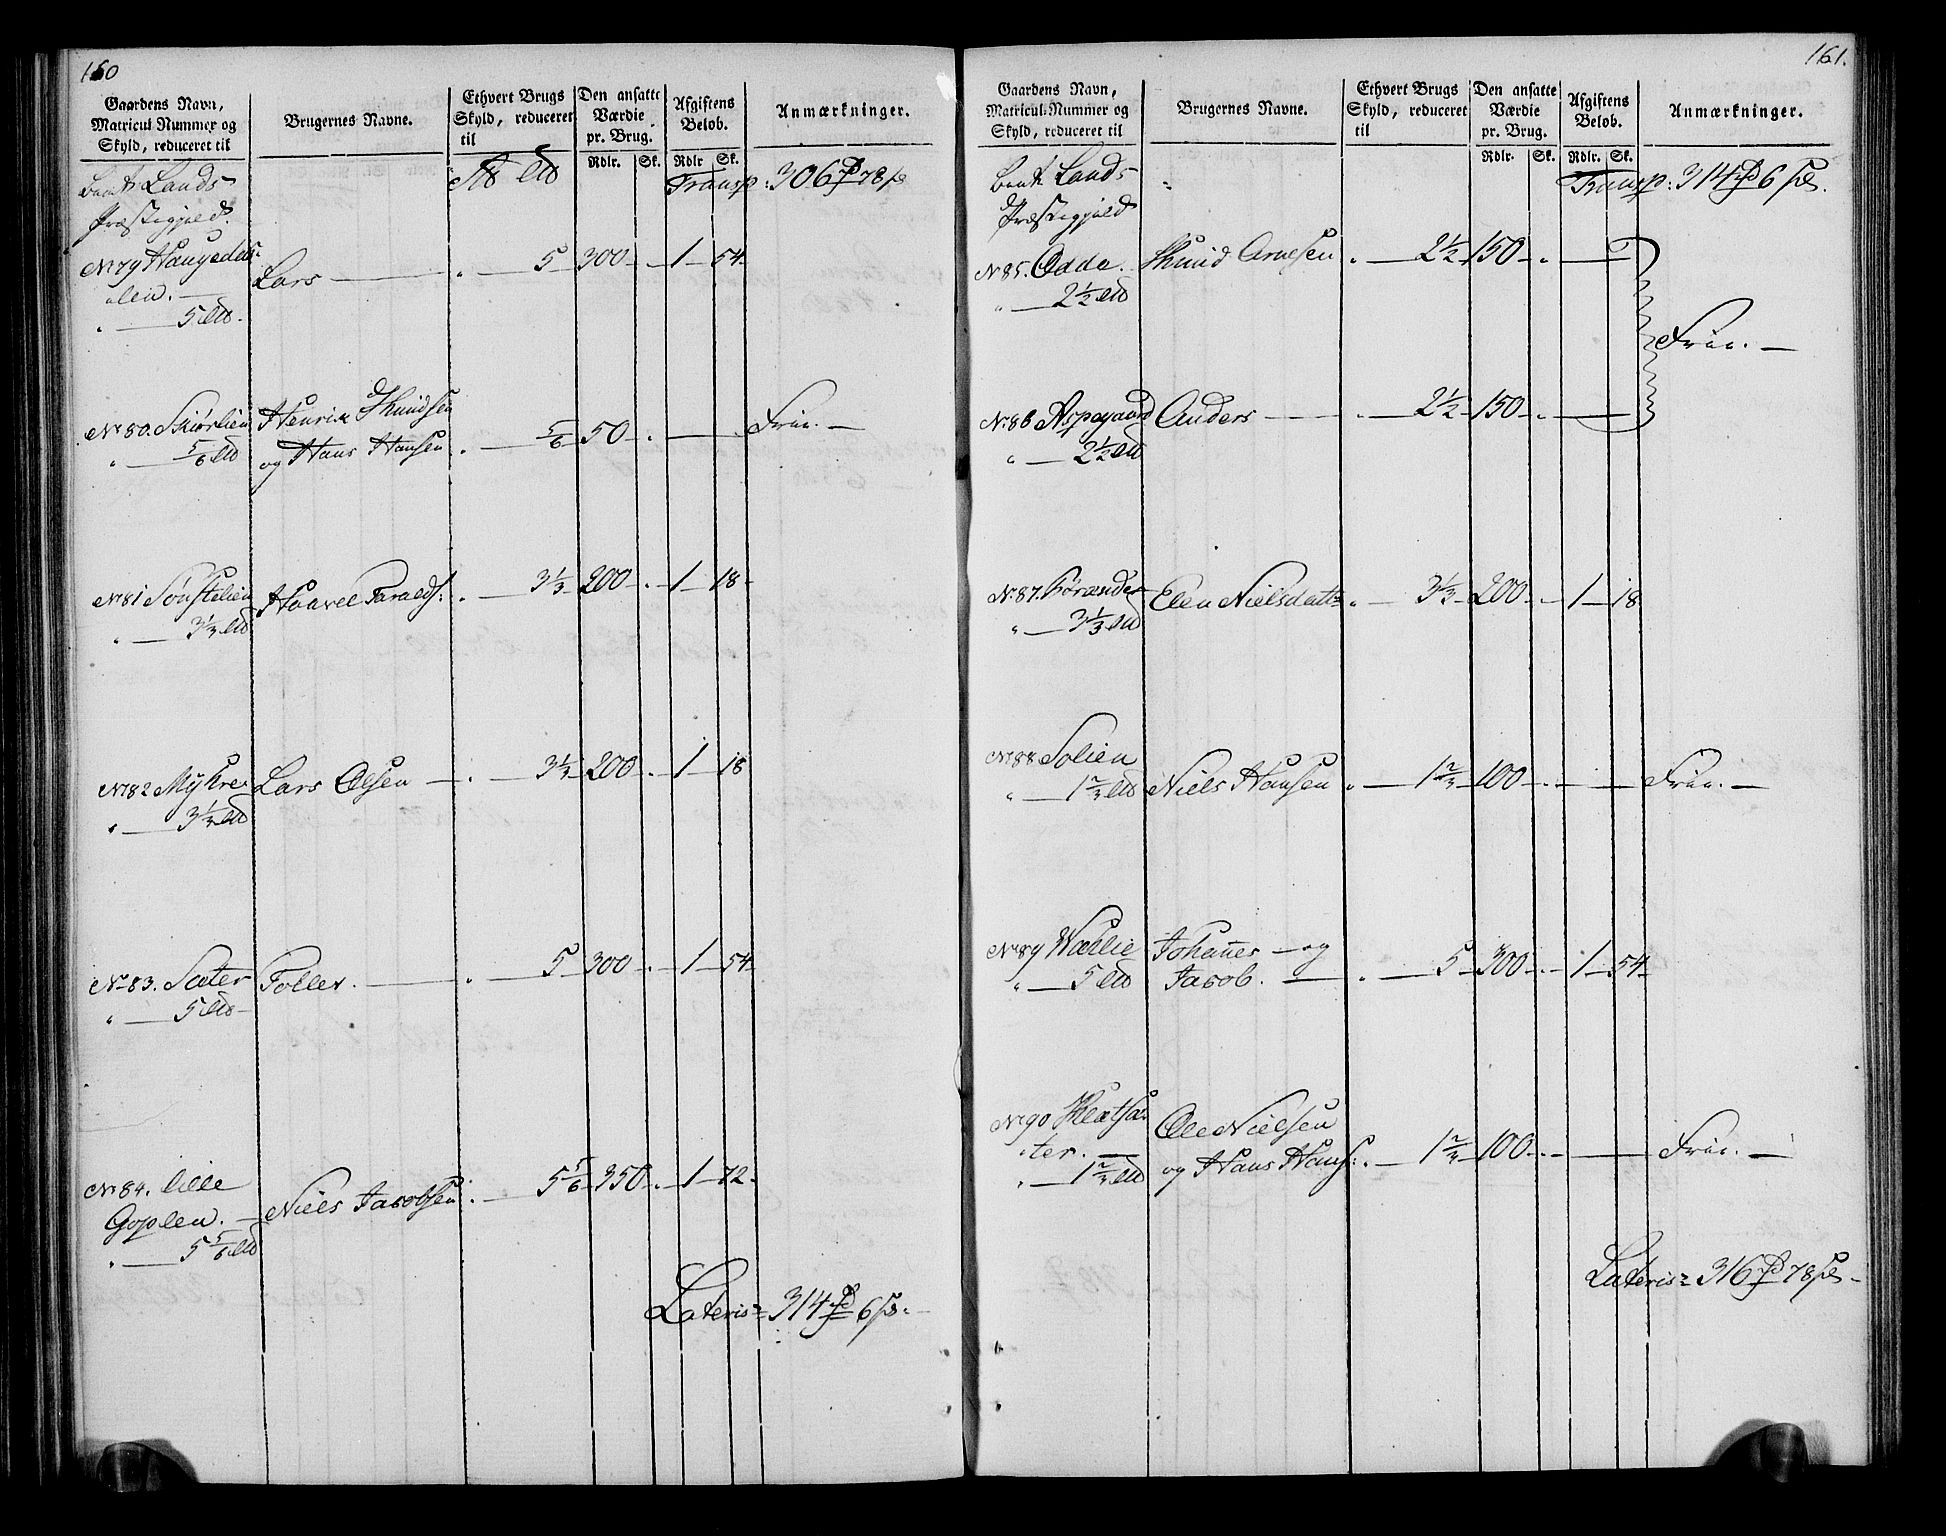 160
Gaardens Navn, Matricul Nummer og Skyld, reduceret til
Brugernes Navne.
Ethvert Brugs Skyld, reduceret til
Den ansatte Værdie pr. Brug.
Afgiftens Beløb.
Anmærkninger.
Rdlr. Sk. Rdlr Sk.
Lands Præstegjeld.
Transp: 306 78
No 79 Haugsdal- Lars — 5 300 - 1 - 54
lien.
5
No 80. Skiørlien Henrik Knudsen
5/6 og Hans Hansen 5/6 50 - Frie. —
No 81 Sønstelien Haavel Taralds: 3 1/3 200 - 1 - 18
3 1/3
No 82 Mykre Lars Olsen — 3 1/3 200 - 1 - 18
3 1/3
No 83. Sæter Tollev. — 5 300 - 1 - 54
5
No 84. Lille
Goplen. — Niels Jacobsen 5 5/6 350 - 1 - 72
5 5/6
Lateris 314 6
161.
Gaardens Navn, Matricul-Nummer og Skyld, reduceret til
Brugernes Navne.
Ethvert Brugs Skyld, reduceret til
Den ansatte Værdie pr. Brug.
Afgiftens Beløb.
Anmærkninger.
Rdlr. Sk. Rdlr. Sk.
Lands Præstegjeld
Transp: 314 6
No 85. Odde. Knud Arnesen 2 1/2 150 -
2 1/2
Frie. —
No 86 Aspegaard Anders — 2 1/2 150 -
2 1/2
No 87. Elen Nielsdatt: 3 1/3 200 - 1 - 18
3 1/3
No 88 Solien
1 2/3 Niels Hansen 1 2/3 100 - Frie. —
No 89 Johannes — og
5 Jacob. — 5 300 - 1 - 54
No 90 Klætsæ-
ter. — Ole Nielsen
1 2/3 og Hans Hans: 1 2/3 100 - Frie. —
Lateris 316 78